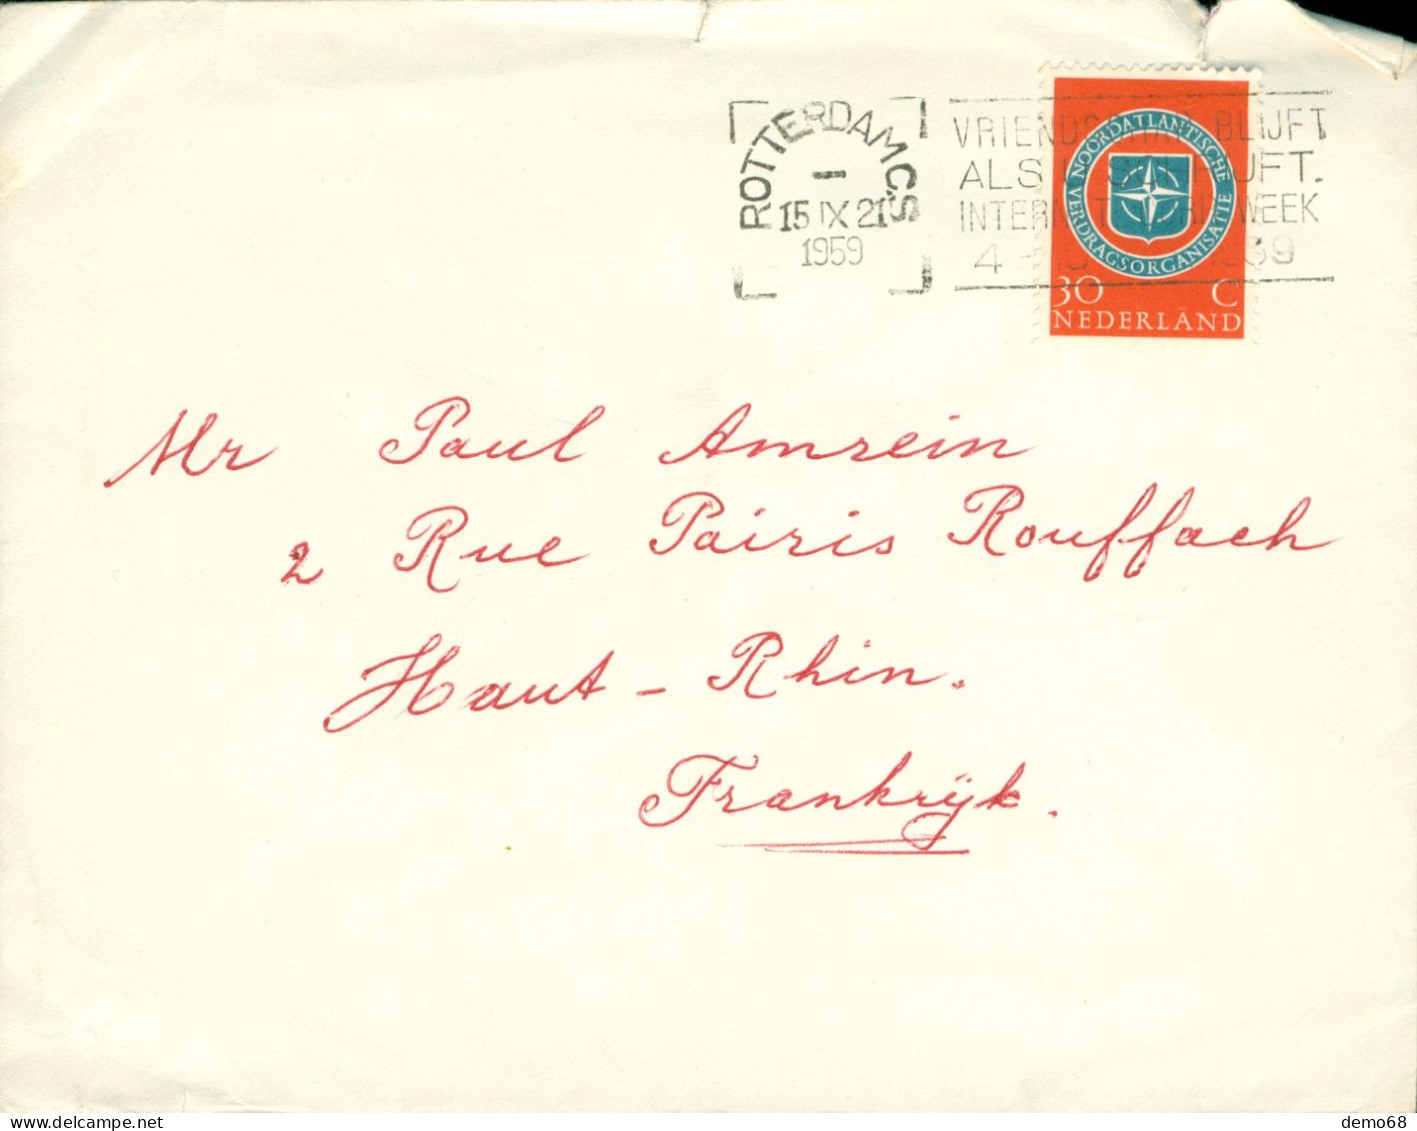 ROTTERDAM C.S
1
15 IX 21
1959
VRIENDSCHAP BLIJFT
ALS U SCHRIJFT.
WEEK
4 -
NOORDATLANTISCHE VERDRAGSORGANISATIE
30 C
NEDERLAND
Mr Paul Amrein
2 Rue Pairis Rouffach
Haut - Rhin.
Frankrÿk.
delcampe.net
demo68